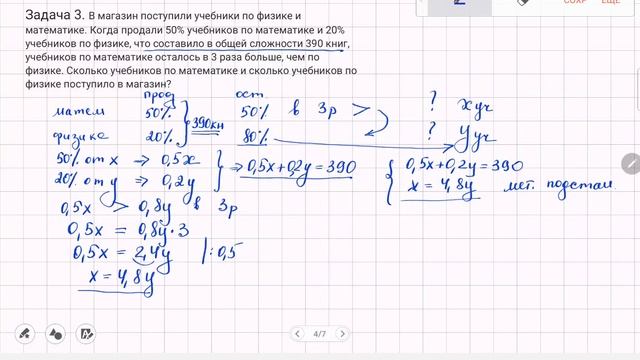 СОХР ЕЩЕ
Задача 3. В магазин поступили учебники по физике и
математике. Когда продали 50% учебников по математике и 20%
учебников по физике, что составило в общей сложности 390 книг,
учебников по математике осталось в 3 раза больше, чем по
физике. Сколько учебников по математике и сколько учебников по
физике поступило в магазин?
прод ост.
матем 50% } 390кн 50% в 3р > ? x уч
физике 20% 80% ? y уч
50% от x → 0,5x
20% от y → 0,2y
⇒ 0,5x+0,2y=390
{ 0,5x+0,2y=390
x = 4,8y мет. подстан
0,5x > 0,8y в 3р
0,5x = 0,8y·3
0,5x = 2,4y |:0,5
x = 4,8y
4/7